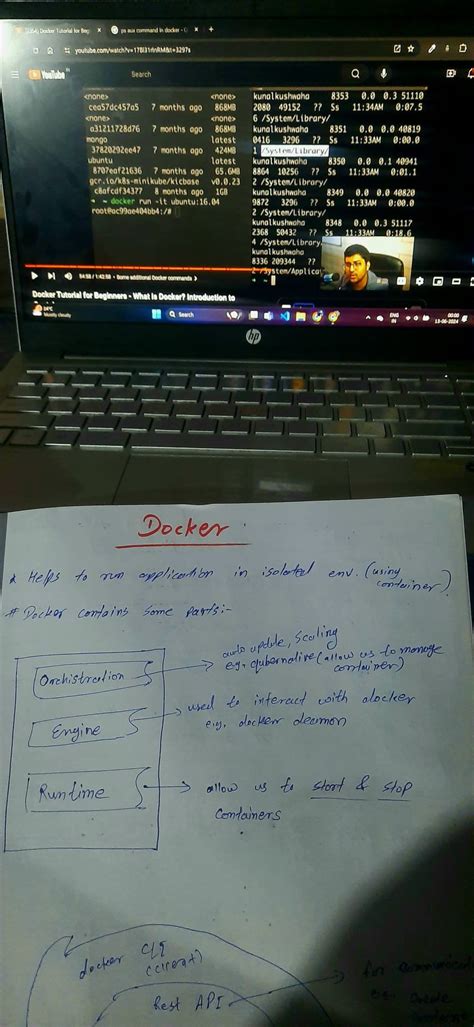 (354) Docker Tutorial for Beg
ps aux command in docker -
youtube.com/watch?v=17Bl31rlnRM&t=3297s
YouTube IN
Search
<none> <none> 868MB
cea57dc457a5 7 months ago 868MB
<none> <none>
a31211728d76 7 months ago 868MB
mongo latest
37820292ee47 7 months ago 424MB
ubuntu latest
8707eaf21636 7 months ago 65.6MB
gcr.io/k8s-minikube/kicbase v0.0.23
c8afcdf34377 8 months ago 1GB
docker run -it ubuntu:16.04
root@ac99ae404bb4:/#
kunalkushwaha 8353 0.0 0.3 51110
2080 49152 ?? Ss 11:34AM 0:07.5
6 /System/Library/
kunalkushwaha 8351 0.0 0.0 40819
0416 3296 ?? Ss 11:33AM 0:00.0
1 /System/Library/
kunalkushwaha 8350 0.0 0.1 40941
8864 10256 ?? Ss 11:34AM 0:01.1
2 /System/Library/
kunalkushwaha 8349 0.0 0.0 40820
9872 3296 ?? Ss 11:33AM 0:00.0
2 /System/Library/
kunalkushwaha 8348 0.0 0.3 51117
2368 50432 ?? Ss 11:33AM 0:18.6
4 /System/Library/
kunalkushwaha
8336 209344 ??
2 /System/Applicat
54:58 / 1:43:58 • Some additional Docker commands >
Docker Tutorial for Beginners - What is Docker? Introduction to
24°C
Mostly cloudy
Search
ENG
IN
00:00
13-06-2024
hp
Docker
* Helps to run application in isolated env. (using
container)
# Docker contains some parts:-
Orchistration
auto update, Scaling
eg. qubernative (allow us to manage
container)
Engine
used to interact with docker
e.g. docker deamon
Runtime
allow us to start & stop
containers
docker CLI
(client)
Rest API
for
e.g.